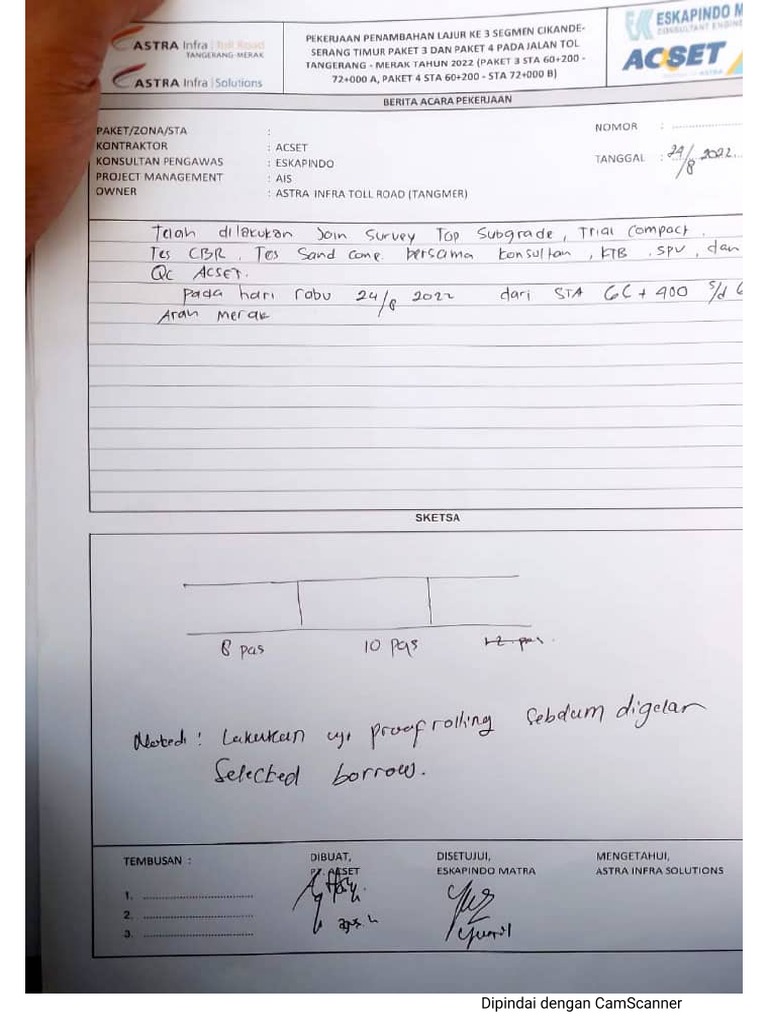 ASTRA Infra | Toll Road
TANGERANG-MERAK
ASTRA Infra | Solutions
PEKERJAAN PENAMBAHAN LAJUR KE 3 SEGMEN CIKANDE-
SERANG TIMUR PAKET 3 DAN PAKET 4 PADA JALAN TOL
TANGERANG - MERAK TAHUN 2022 (PAKET 3 STA 60+200 -
72+000 A, PAKET 4 STA 60+200 - STA 72+000 B)
ESKAPINDO M
CONSULTANT ENGINE
ACSET
BERITA ACARA PEKERJAAN
PAKET/ZONA/STA :
KONTRAKTOR : ACSET
KONSULTAN PENGAWAS : ESKAPINDO
PROJECT MANAGEMENT : AIS
OWNER : ASTRA INFRA TOLL ROAD (TANGMER)
NOMOR : ....................
TANGGAL : 24/8 2022
Telah dilakukan Join Survey Top Subgrade, Trial Compact.
Tes CBR, Tes Sand cone bersama konsultan, KTB, SPV, dan
QC ACSET.
pada hari rabu 24/8 2022 dari STA 66+400 s/d 6
Arah Merak
SKETSA
8 pas 10 pas 12 pas.
Noted : Lakukan uji proof rolling sebelum digelar
Selected borrow.
TEMBUSAN :
1. ..............................
2. ..............................
3. ..............................
DIBUAT,
PT. ACSET
DISETUJUI,
ESKAPINDO MATRA
MENGETAHUI,
ASTRA INFRA SOLUTIONS
Dipindai dengan CamScanner